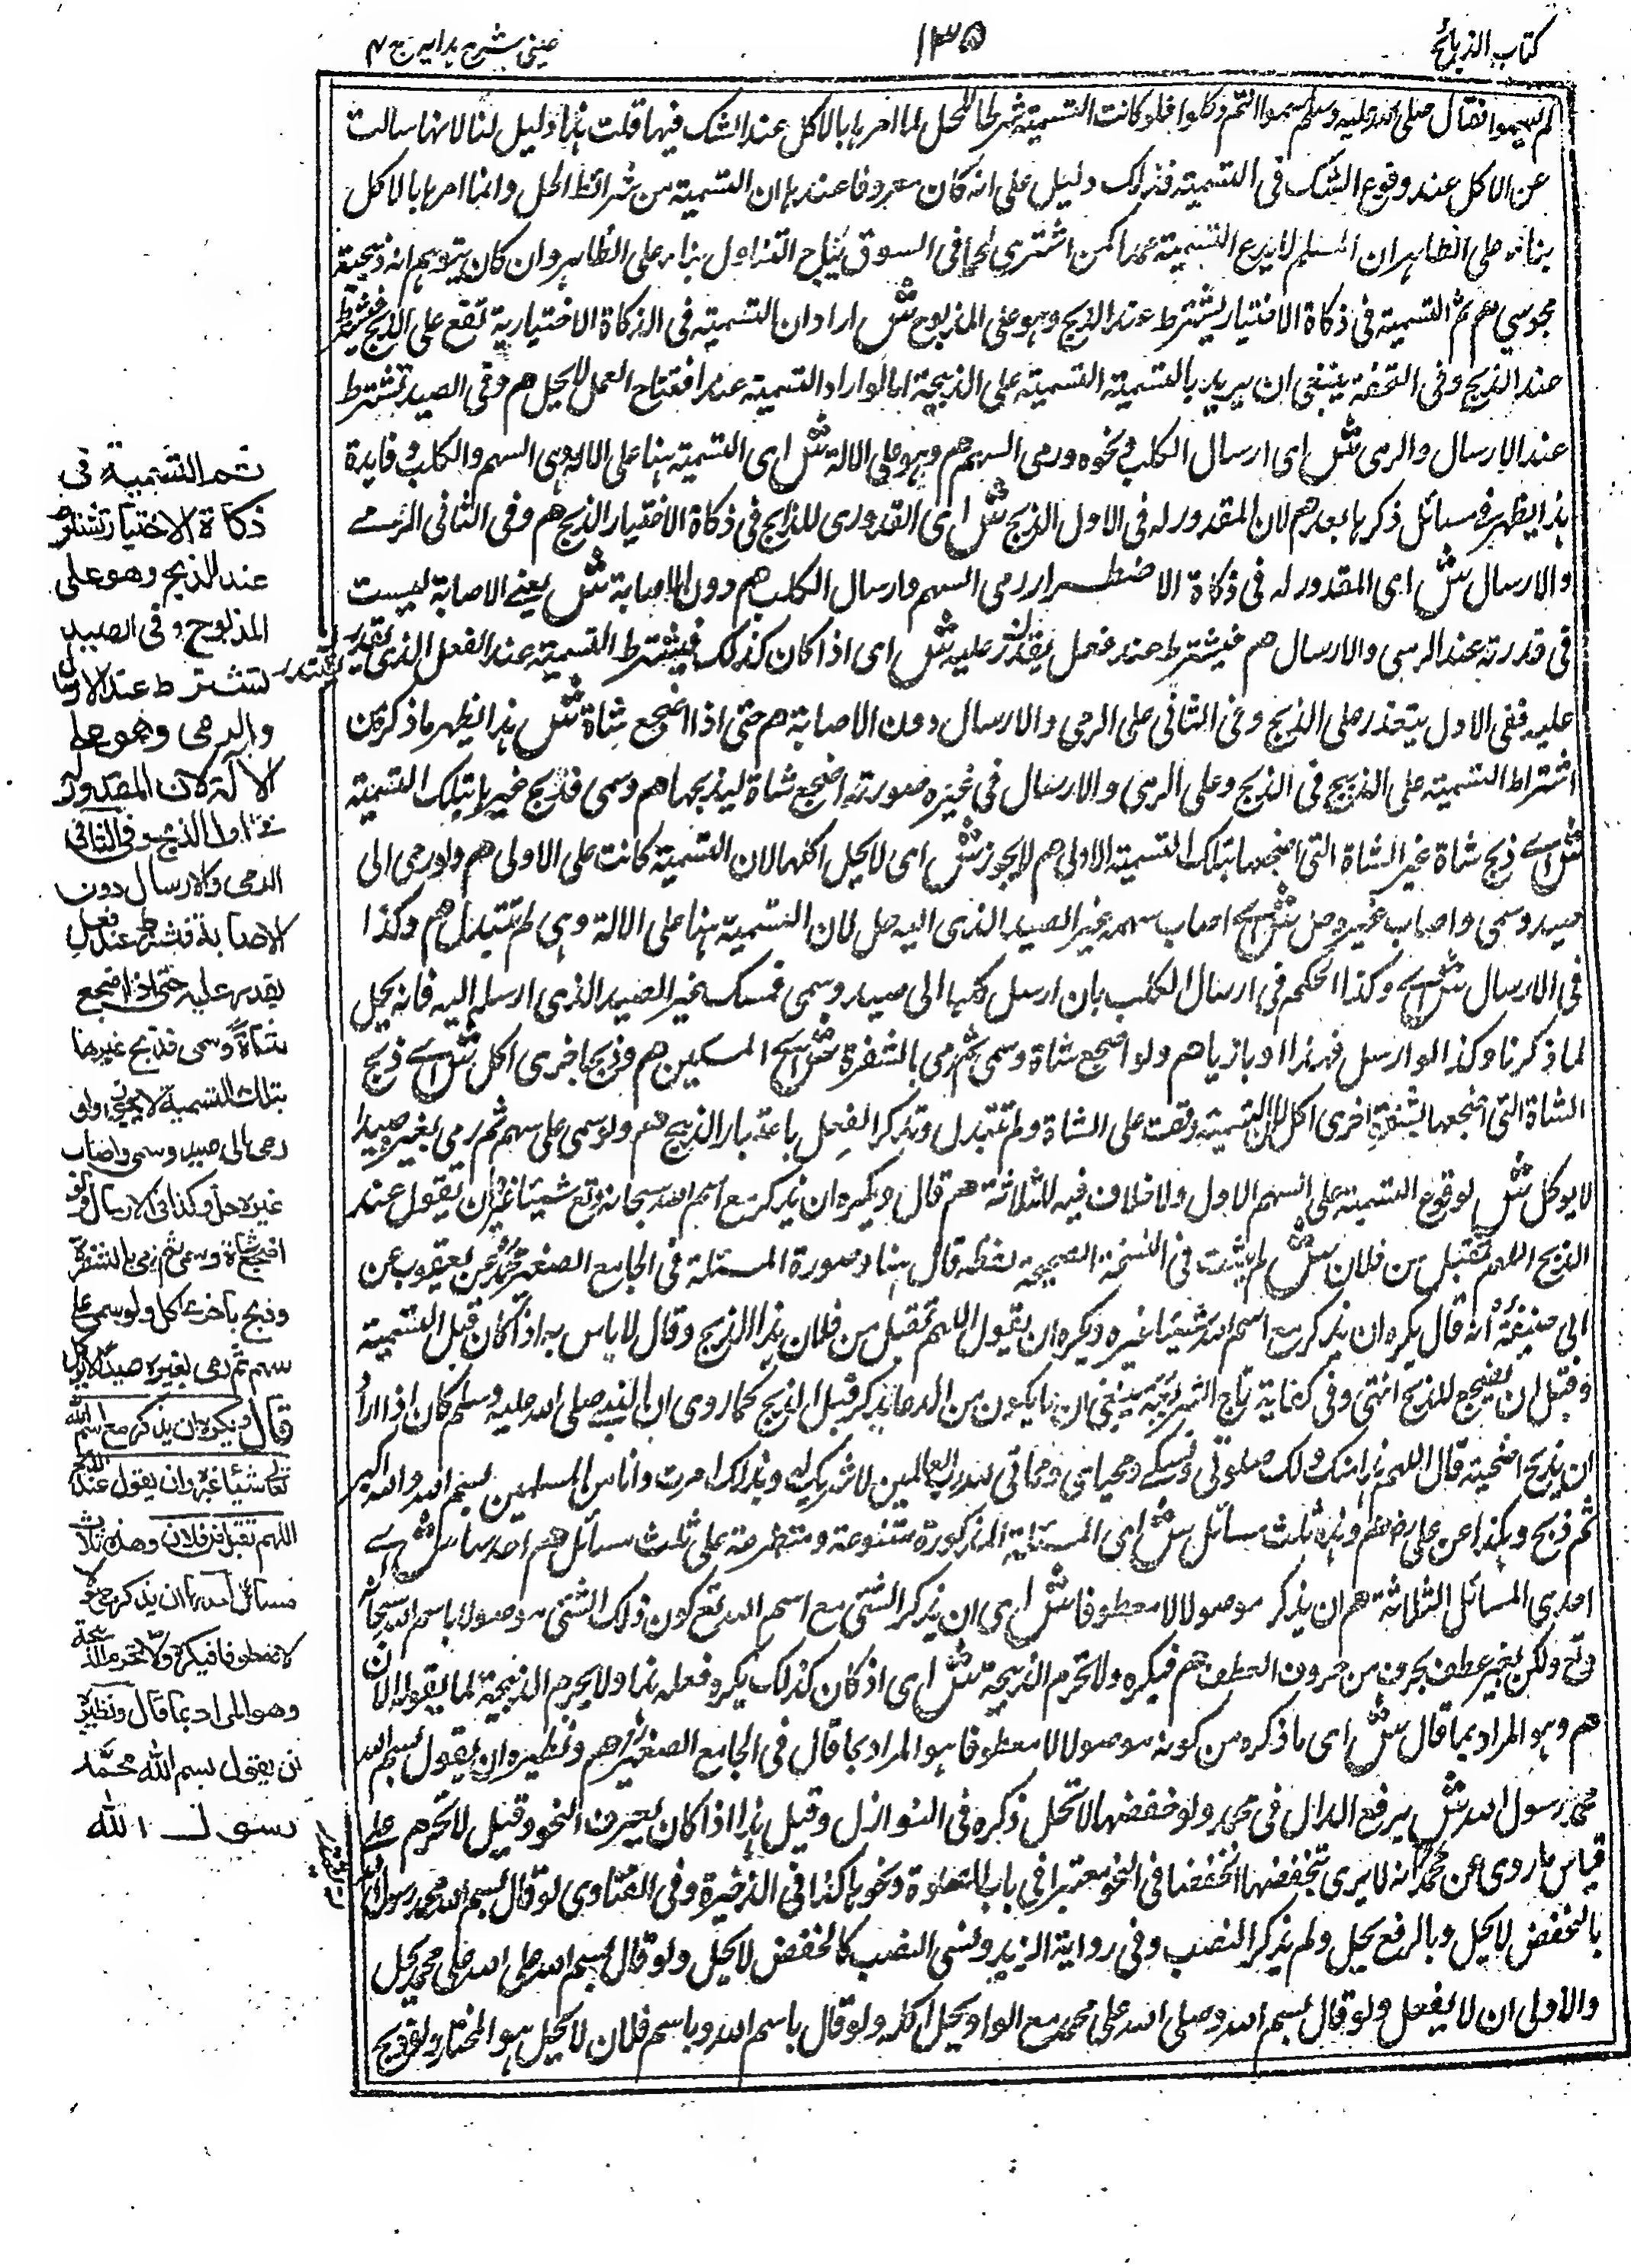 كتاب الذبائح
١٣٥
عيني شرح هدايه ج ٤
لم يسموا فقال صلى الله عليه وسلم سموا انتم وكلوا فلو كانت التسمية شرطا للحل لما امرها بالاكل عند الشك فيها قلت هذا دليل لنا لانها سالت
عن الاكل عند وقوع الشك فى التسمية فذلك دليل على انه كان معروفا عندها ان التسمية من شرائط الحل وانما امرها بالاكل
بناء على الظاهر ان المسلم لا يدع التسمية عمدا كمن اشترى لحما فى السوق يباح التناول بناء على الظاهر وان كان يتوهم انه ذبيحة
مجوسي هم ثم التسمية فى ذكاة الاختيار يشترط عند الذبح وهو على المذبوح ش اراد ان التسمية فى الذكاة الاختيارية تقع على الذبح فيشترط
عند الذبح وفى التحفة ينبغى ان يريد بالتسمية التسمية على الذبيحة اما لو اراد التسمية عند افتتاح العمل لا يحل هم وفى الصيد تشترط
عند الارسال والرمى ش اى ارسال الكلب ونحوه ورمى السهم هم وهو على الالة ش اى التسمية هنا على الالة وهى السهم والكلب وفايدة
هذا يظهر فى مسائل ذكرها بعد هم لان المقدور له فى الاول الذبح ش اى القدورى للذابح فى ذكاة الاختيار الذبح هم وفى الثانى الرمے
والارسال ش اى المقدور له فى ذكاة الاضطرار رمى السهم وارسال الكلب هم دون الاصابة ش يعنے الاصابة ليست
فى قدرته عند الرمى والارسال هم فيشترط عند فعل يقدر عليه ش اى اذا كان كذلك فيشترط التسمية عند الفعل الذى يقدر
عليه ففى الاول يتعذر على الذبح وفى الثانى على الرمى والارسال دون الاصابة هم حتى اذا اضجع شاة ش هذا يظهر ما ذكر من
اشتراط التسمية على الذبيح فى الذبح وعلى الرمى والارسال فى غيره صورته اضجع شاة ليذبحها هم وسمى فذبح غيرها بتلك التسمية
ش اے ذبح شاة غير الشاة التى اضجعها بتلك التسمية الاولى هم لا يجوز ش اى لا يحل اكلها لان التسمية كانت على الاولى هم ولو رمى الى
صيد وسمى واصاب غيره حل ش اے اصاب سهمه غير الصيد الذى اليه حل لان التسمية هنا على الالة وهى لم تتبدل هم وكذا
فى الارسال ش اے وكذا الحكم فى ارسال الكلب بان ارسل كلبا الى صيد وسمى فمسك غير الصيد الذى ارسله اليه فانه يحل
لما ذكرنا وكذا لو ارسل فهدا او بازيا هم ولو اضجع شاة وسمى ثم رمى بالشفرة ش اے السكين هم وذبح باخرى اكل ش اے ذبح
الشاة التى اضجعها بشفرة اخرى اكل لان التسمية وقعت على الشاة ولم تتبدل وتذكر الفعل باعتبار الذبيح هم ولو سمى على سهم ثم رمى بغيره صيدا
لا يوكل ش لوقوع التسمية على السهم الاول ولا خلاف فيه للثلاثة هم قال ويكره ان يذكر مع اسم الله سبحانه وتع شيئا غيره ان يقول عند
الذبح اللهم تقبل من فلان ش لم يثبت فى النسخة الصحيحة لفظه قال هنا وصورة المسئلة فى الجامع الصغير محمد عن يعقوب عن
ابى حنيفة انه قال يكره ان يذكر مع اسم الله شيئا غيره ويكره ان يقول اللهم تقبل من فلان هذا الذبح وقال لا باس به اذا كان قبل التسمية
وقبل ان يضجع للذبح انتهى وفى كفاية تاج الشريعة ينبغى ان ما يكون من الدعا يذكر قبل الذبح كما روى ان النبى صلى الله عليه وسلم كان اذا اراد
ان يذبح اضحيته قال اللهم هذا منك ولك صلوتى ونسكے ومحياى ومماتى لله رب العالمين لا شريك له وبذلك امرت وانا من المسلمين بسم الله والله اكبر
ثم ذبح وهكذا عن على رض هم وهذه ثلث مسائل ش اى المسئلة المذكورة متنوعة ومتطرحة على ثلث مسائل هم احدها ش اے
احدى المسائل الثلاثة هم ان يذكر موصولا لا معطوفا ش اى ان يذكر الشئى مع اسم الله تع كون ذلك الشئى موصولا باسم الله سبحانه
وتع ولكن بغير عطف بحرف من حروف العطف هم فيكره ولا تحرم الذبيحة ش اى اذ كان كذلك يكره فعله هذا ولا يحرم الذبيحة لما يقوله الآن
هم وهو المراد بما قال ش اى ما ذكره من كونه موصولا لا معطوفا هو المراد بما قال فى الجامع الصغير هم ونظيره ان يقول بسم الله
محمد رسول الله ش يرفع الدال فى محمد ولو خفضها لا تحل ذكره فى النوازل وقيل هذا اذا كان يعرف النحو وقيل لا تحرم على
قياس ما روى عن محمد انه لا يرى تخفضها الخفضا فى النحو معتبرا فى باب الصلوة ونحوها كذا فى الذخيرة وفى الفتاوى لو قال بسم الله محمد رسول الله
بالخفض لا يحل وبالرفع يحل ولم يذكر النصب وفى رواية الزيدوبستى النصب كالخفض لا يحل ولو قال بسم الله صلى الله على محمد يحل
والاولى ان لا يفعل ولو قال بسم الله وصلى الله على محمد مع الواو يحل اكله ولو قال باسم الله وباسم فلان لا يحل هو المختار ولو ذبح
ثم التسمية فى
ذكاة الاختيار تشترط
عند الذبح وهو على
المذبوح وفى الصيد
تشترط عند الارسال
والرمى وهو على
الآلة لان المقدور
فى الاول الذبح وفى الثانى
الرمى والارسال دون
الاصابة فتشترط عند فعل
يقدر عليه حتى اذا اضجع
شاة وسمى فذبح غيرها
بتلك التسمية لا يجوز ولو
رمى الى صيد وسمى واصاب
غيره حل وكذا فى الارسال ولو
اضجع شاة وسمى ثم رمى بالشفرة
وذبح باخرى اكل ولو سمى على
سهم ثم رمى بغيره صيدا لا يوكل
قال ويكره ان يذكر مع اسم الله
تعالى شيئا غيره وان يقول عند الذبح
اللهم تقبل من فلان وهذه ثلاث
مسائل احدها ان يذكر موصولا
لا معطوفا فيكره ولا تحرم الذبيحة
وهو المراد بما قال ونظيره
ان يقول بسم الله محمد
رسول الله